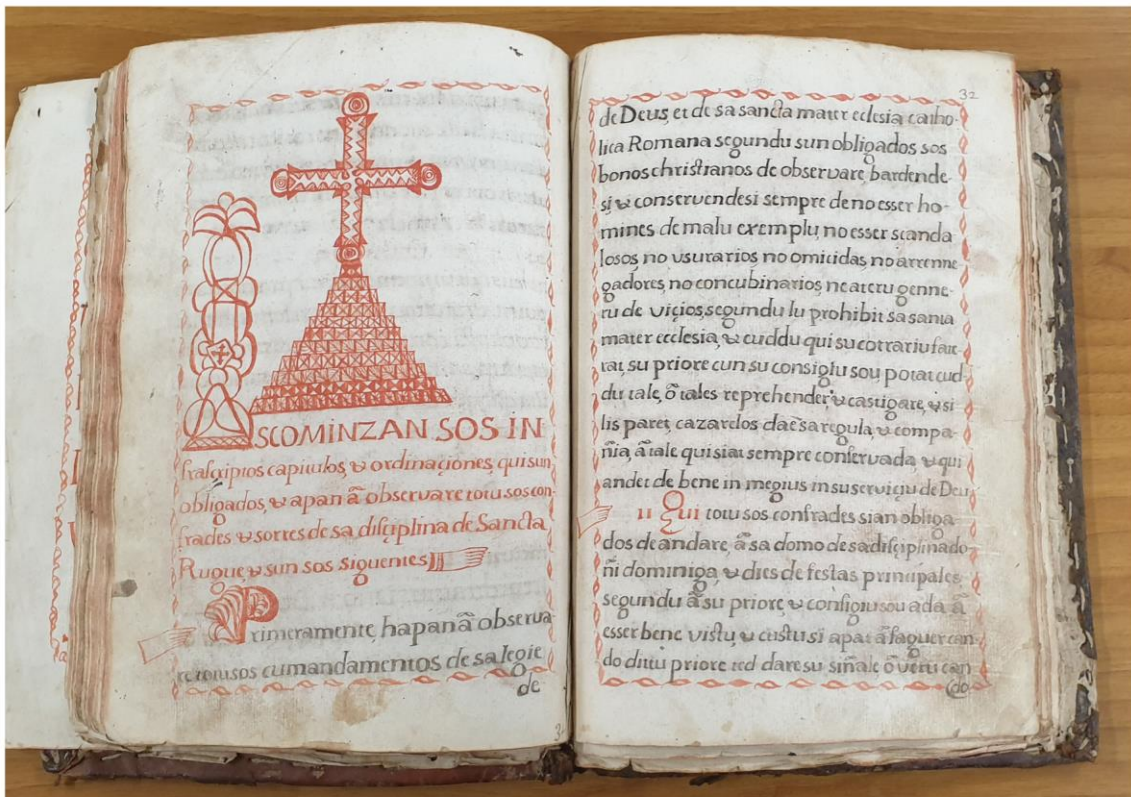 ISCOMINZAN SOS IN
frascriptos capitulos, & ordinaçiones, qui sun
obligados, & apan â observare totu sos con
frades & sorres de sa disçiplina de Sancta
Rugue, & sun sos siguentes
Primeramente, hapan â observa
re totu sos cumandamentos de sa legie
de
32
de Deus, et de sa sancta mater eclesia catho-
lica Romana segundu sun obligados sos
bonos christianos de observare bardende-
si & conservendesi sempre de no esser ho-
mines de malu exemplu, no esser scanda
losos, no usurarios, no omicidas, no arrenne
gadores, no concubinarios, ne ateru genne-
ru de viçios, segundu lu prohibit sa santa
mater ecclesia, & cuddu qui su cotrariu fait
rat, su priore cun su consiglu sou potat cud
du tale, ô tales reprehender & castigare, & si
lis paret, cazarelos daê sa regula, & compa-
ñia, â tale qui siat sempre conservada & qui
andet de bene in megius in su serviçiu de Deus
II Qui totu sos confrades sian obliga
dos de andare, â sa domo de sa disçiplina do
ñi dominiga, & dies de festas principales
segundu â su priore, & consigiu sou ada â
esser bene vistu, & custu si apat â faguer can
do dittu priore ted dare su siñale, ô veru can
do